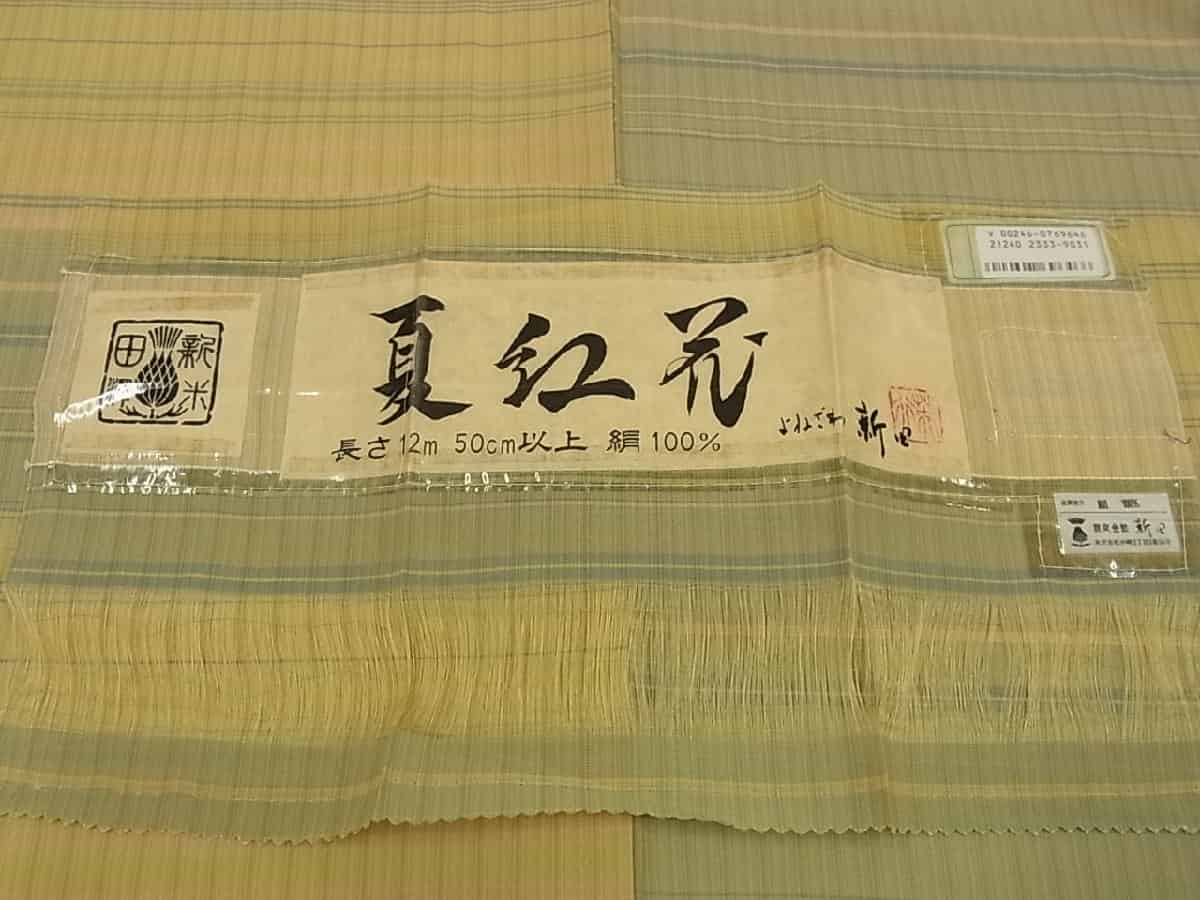 新米
田沢
夏红花
長さ12m 50cm以上 絹100%
よねざわ 新田
V 00246-0769646
21240 2333-9031
絹 100%
新田